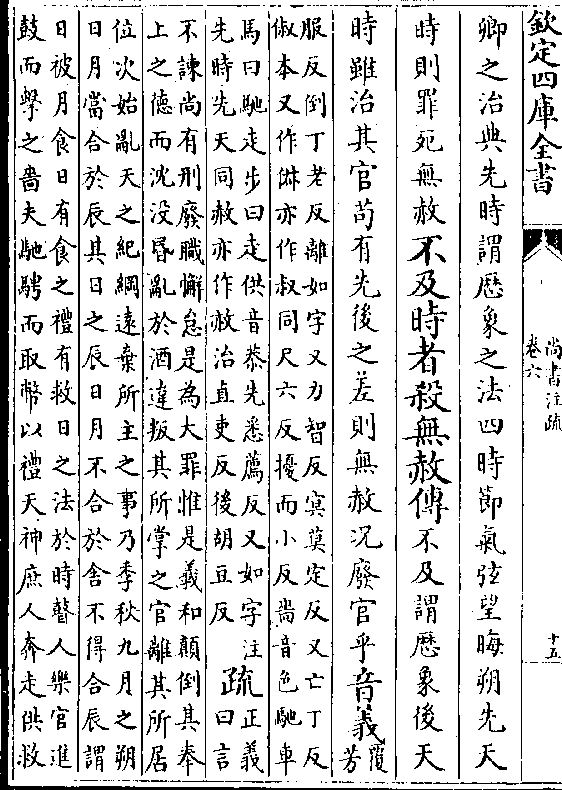 欽定四庫全書
尚書注疏
卷六
十五
卿之治典先時謂歴象之法四時節氣弦望晦朔先天
時則罪死無赦不及時者殺無赦傳不及謂歴象後天
時雖治其官苟有先後之差則無赦况廢官乎音義覆芳
服反倒丁老反離如字又力智反㝠莫定反又亡丁反
俶本又作俶亦作叔同尺六反擾而小反嗇音色馳車
馬曰馳走步曰走供音恭先悉薦反又如字注
先時先天同赦亦作赦治直吏反後胡豆反
疏正義曰言
不諫尚有刑廢職懈怠是為大罪惟是羲和顛倒其奉
上之德而沈没昬亂於酒違叛其所掌之官離其所居
位次始亂天之紀綱遠棄所主之事乃季秋九月之朔
日月當合於辰其日之辰日月不合於舍不得合辰謂
日被月食日有食之禮有救日之法於時瞽人樂官進
鼓而擊之嗇夫馳騁而取幣以禮天神庶人奔走供救